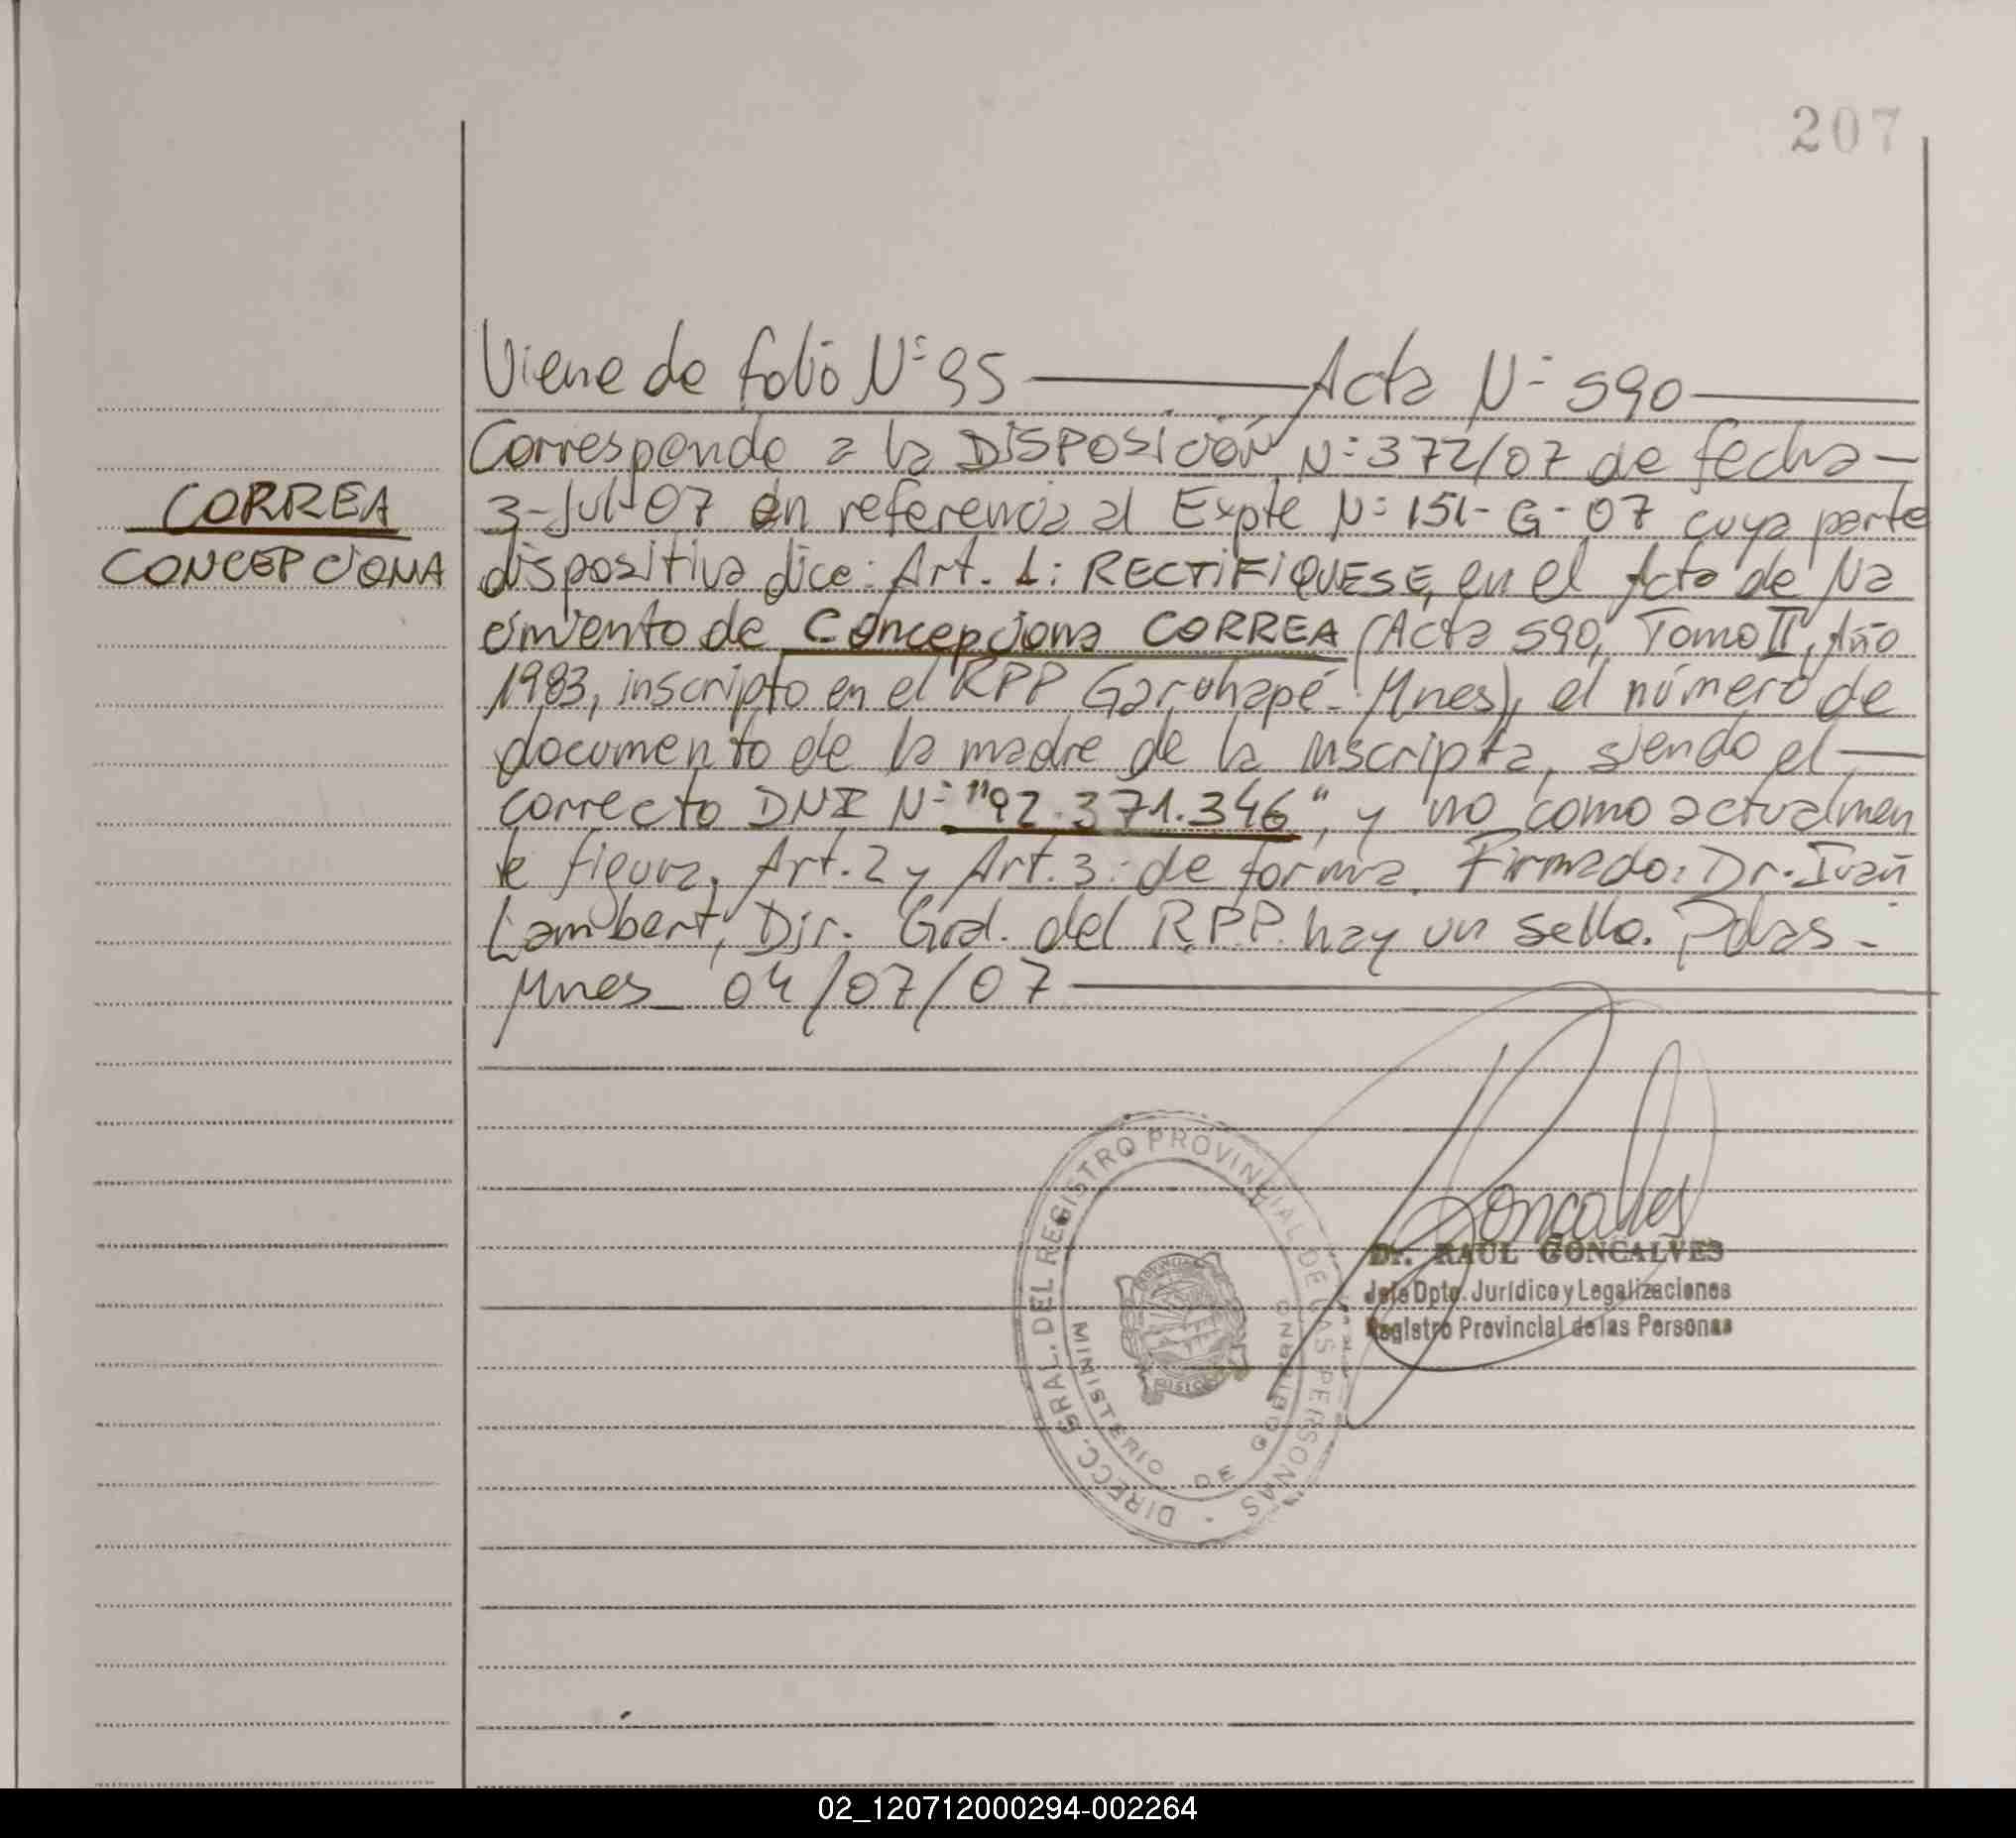 207
Viene de folio Nº 95 Acta Nº 590
Corresponde a la DISPOSICIÓN Nº 372/07 de fecha -
CORREA
3-Jul-07 en referencia al Expte Nº 151-G-07 cuya parte
CONCEPCIONA
dispositiva dice: Art. 1: RECTIFIQUESE, en el Acta de Na
cimiento de Concepciona CORREA (Acta 590, Tomo II, Año
1983, inscripto en el RPP Garuhapé - Mnes), el número de
documento de la madre de la inscripta, siendo el
correcto DNI Nº "92.371.346", y no como actualmen
te figura. Art. 2 y Art. 3: de forma. Firmado: Dr. Iván
Lambert, Dir. Gral. del R.P.P. hay un sello. Pdas -
Mnes 04/07/07
DIRECC. GRAL. DEL REGISTRO PROVINCIAL DE LAS PERSONAS
MINISTERIO DE GOBIERNO
Goncalves
Dr. RAUL GONCALVES
Jefe Dpto. Jurídico y Legalizaciones
Registro Provincial de las Personas
02_120712000294-002264